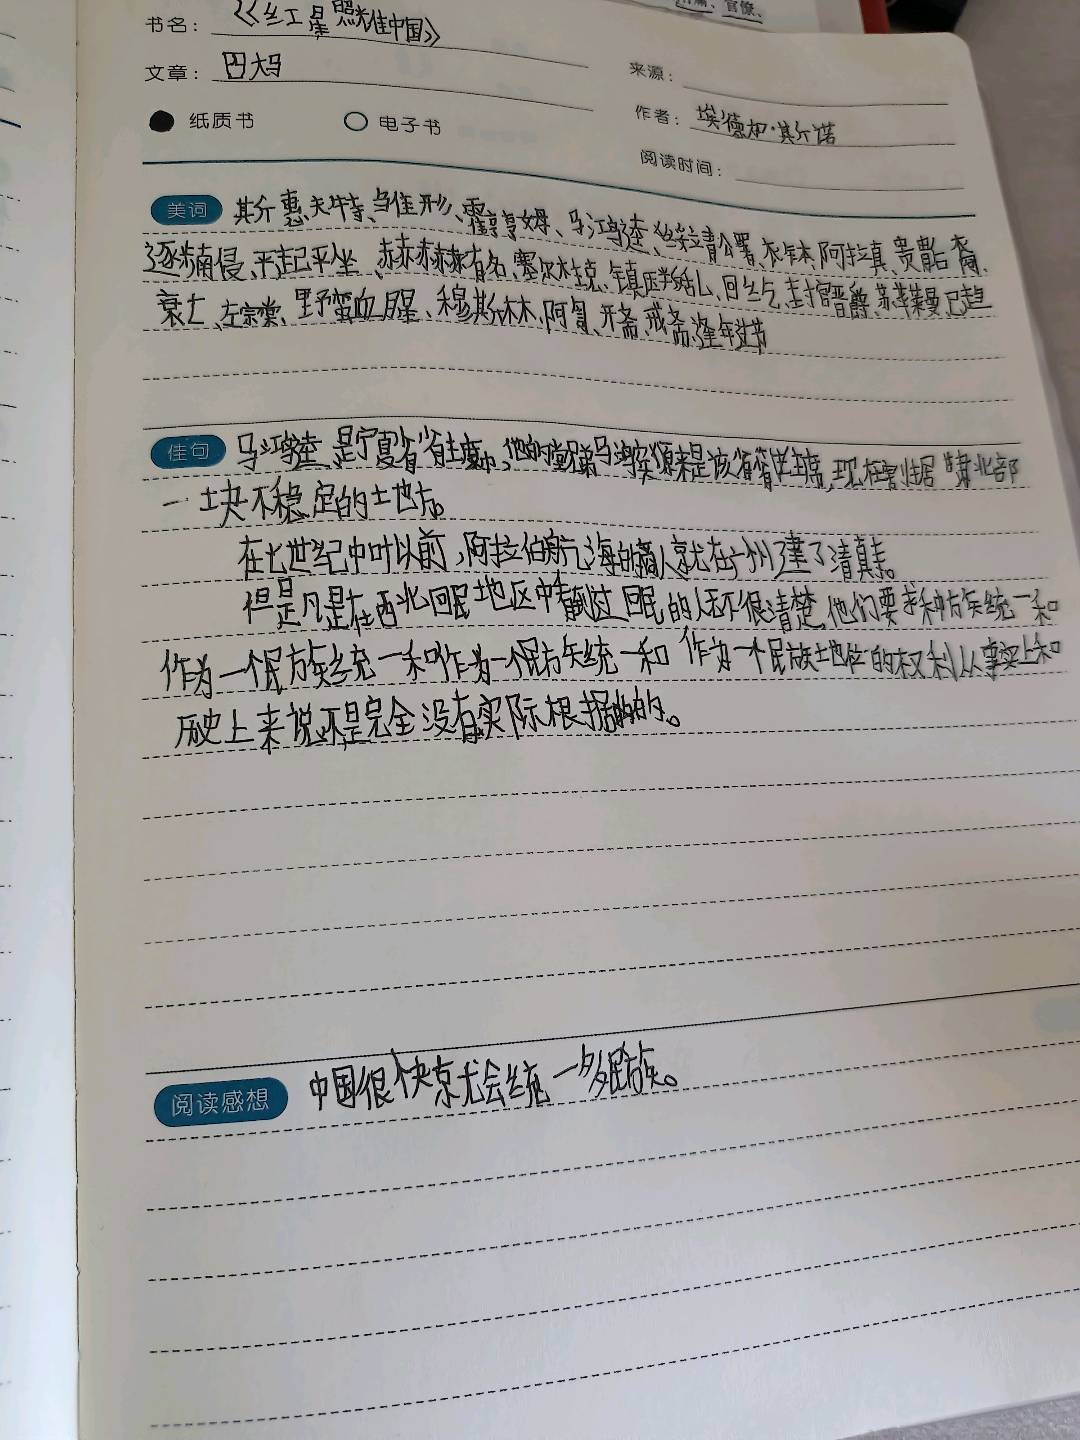 官僚、
书名：《红星照耀中国》
文章：四大马
来源：
纸质书
电子书
作者：埃德加·斯诺
阅读时间：
美词 其斤惠、夫牛寺、当佳形、霍亨姆、马鸿逵、公署、衣钵、阿拉真、贵胄后裔、
逐南侵、平起平坐、赫赫有名、塞尔柱克、镇压判乱、回纥、封官晋爵、苏莱曼
衰亡、左宗棠、野蛮血腥、穆斯林、阿訇、开斋、戒斋、逢年过节
佳句 马鸿逵是宁夏省省主席，他的堂兄弟马鸿宾原来是该省省主席，现在割据甘肃北部
一块不稳定的土地方。
在七世纪中叶以前，阿拉伯航海的商人就在广州建了清真寺。
但是凡是在西北回民地区中到过回民的人不很清楚，他们要求种族统一和
作为一个民族统一和作为一个民族统一和作为一个民族地位的权利从事实上和
历史上来说还是完全没有实际根据的。
阅读感想 中国很快京尤会统一多民族。